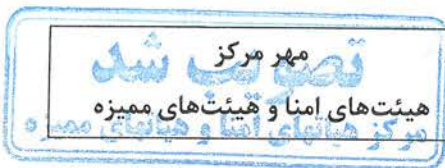 مهر مرکز
هیئت‌های امنا و هیئت‌های ممیزه
تصویب شد
مرکز هیاتهای امنا و هیاتهای ممیزه